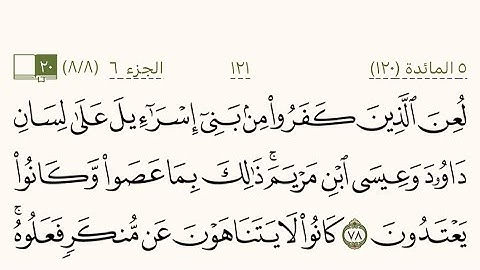 ٥ المائدة (١٢٠) ١٢١ الجزء ٦ (٨/٨) ٢٠
لُعِنَ ٱلَّذِينَ كَفَرُوا۟ مِنۢ بَنِىٓ إِسْرَٰٓءِيلَ عَلَىٰ لِسَانِ
دَاوُۥدَ وَعِيسَى ٱبْنِ مَرْيَمَ ۚ ذَٰلِكَ بِمَا عَصَوا۟ وَّكَانُوا۟
يَعْتَدُونَ ﴿٧٨﴾ كَانُوا۟ لَا يَتَنَاهَوْنَ عَن مُّنكَرٍ فَعَلُوهُ ۚ